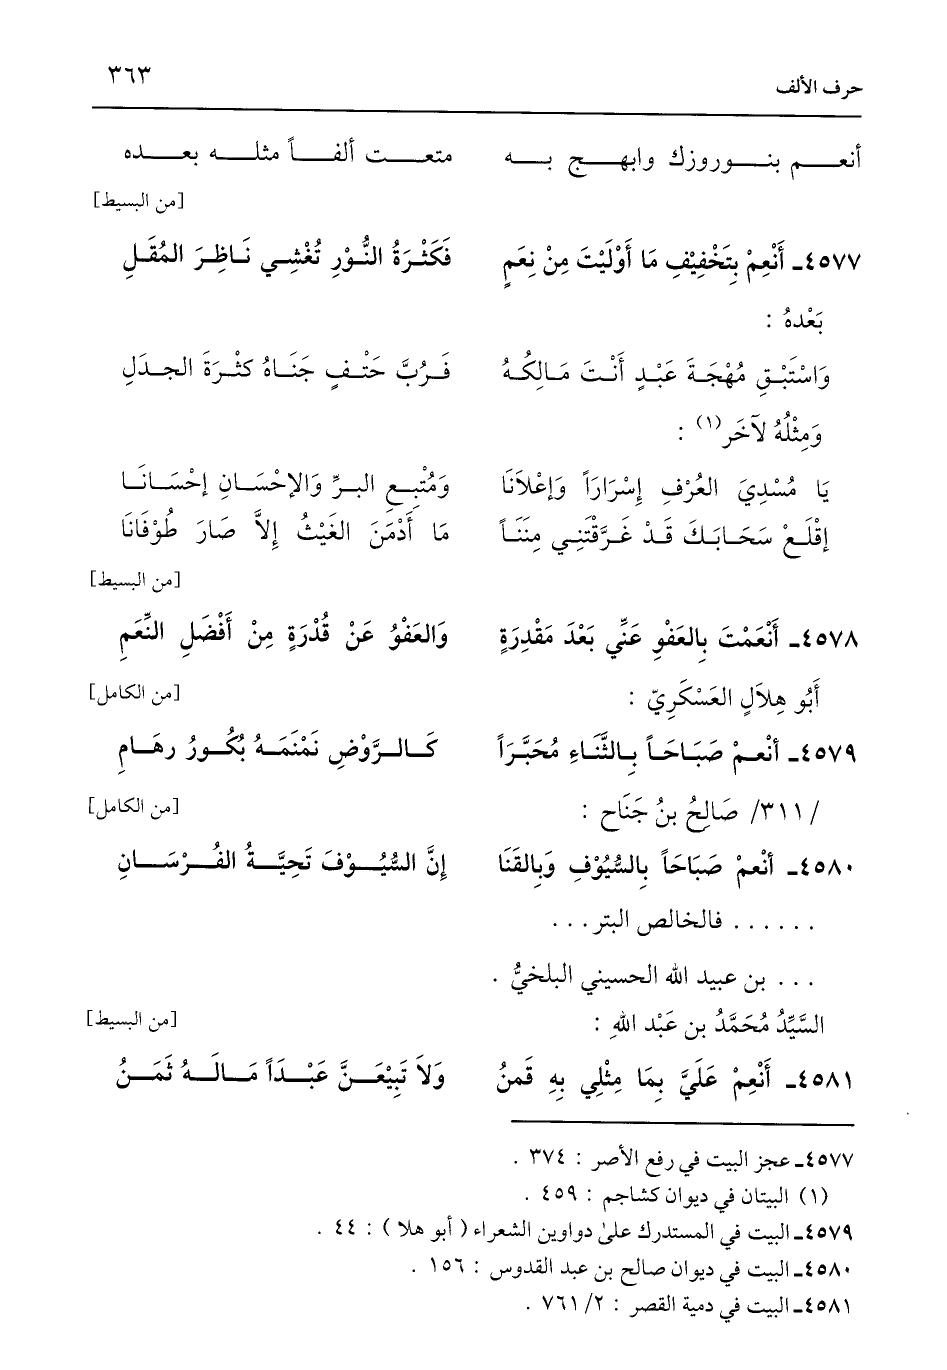 حرف الألف ٣٦٣
أنعم بنوروزك وابهج به متعت ألفاً مثله بعده
[من البسيط]
٤٥٧٧ـ أَنْعِمْ بِتَخْفِيْفِ مَا أَوْلَيْتَ مِنْ نِعَمٍ فَكَثْرَةُ النُّوْرِ تُغْشِي نَاظِرَ المُقَلِ
بَعْدهُ :
وَاسْتَبْقِ مُهْجَةَ عَبْدٍ أَنْتَ مَالِكُهُ فَرُبَّ حَتْفٍ جَنَاهُ كثْرَةَ الجدَلِ
وَمِثْلُهُ لآخَر(١) :
يَا مُسْدِيَ العُرْفِ إِسْرَارَاً وَإعْلاَنَا وَمُتْبِعِ البرِّ وَالإحْسَانِ إحْسَانَا
إقْلَعْ سَحَابَكَ قَدْ غَرَّقْتَنِي مِنَناً مَا أَدْمَنَ الغَيْثُ إلاَّ صَارَ طُوْفَانَا
[من البسيط]
٤٥٧٨ـ أَنْعَمْتَ بِالعَفْوِ عَنِّي بَعْدَ مَقْدِرَةٍ وَالعَفْوُ عَنْ قُدْرَةٍ مِنْ أَفْضَلِ النِّعَمِ
أَبُو هِلاَلٍ العَسْكَرِيّ : [من الكامل]
٤٥٧٩ـ أنْعمْ صَبَاحَاً بِالثَّنَاءِ مُحَبَّرَاً كَالرَّوْضِ نَمْنَمَهُ بُكُورُ رِهَامِ
/ ٣١١/ صَالِحُ بنُ جَنَاح : [من الكامل]
٤٥٨٠ـ أنْعمْ صَبَاحَاً بِالسُّيُوْفِ وَبِالقَنَا إِنَّ السُّيُوْفَ تَحِيَّةُ الفُرْسَانِ
. . . . . . فالخالص البتر . . .
. . . بن عبيد الله الحسيني البلخيُّ .
السَّيِّدُ مُحَمَّدُ بن عَبْد اللهِ : [من البسيط]
٤٥٨١ـ أَنْعِمْ عَلَيَّ بِمَا مِثْلِي بِهِ قَمنُ وَلاَ تَبِيْعَنَّ عَبْدَاً مَالَهُ ثَمَنُ
٤٥٧٧ـ عجز البيت في رفع الأصر : ٣٧٤ .
(١) البيتان في ديوان كشاجم : ٤٥٩ .
٤٥٧٩ـ البيت في المستدرك علىٰ دواوين الشعراء ( أبو هلا ) : ٤٤ .
٤٥٨٠ـ البيت في ديوان صالح بن عبد القدوس : ١٥٦ .
٤٥٨١ـ البيت في دمية القصر : ٢/ ٧٦١ .